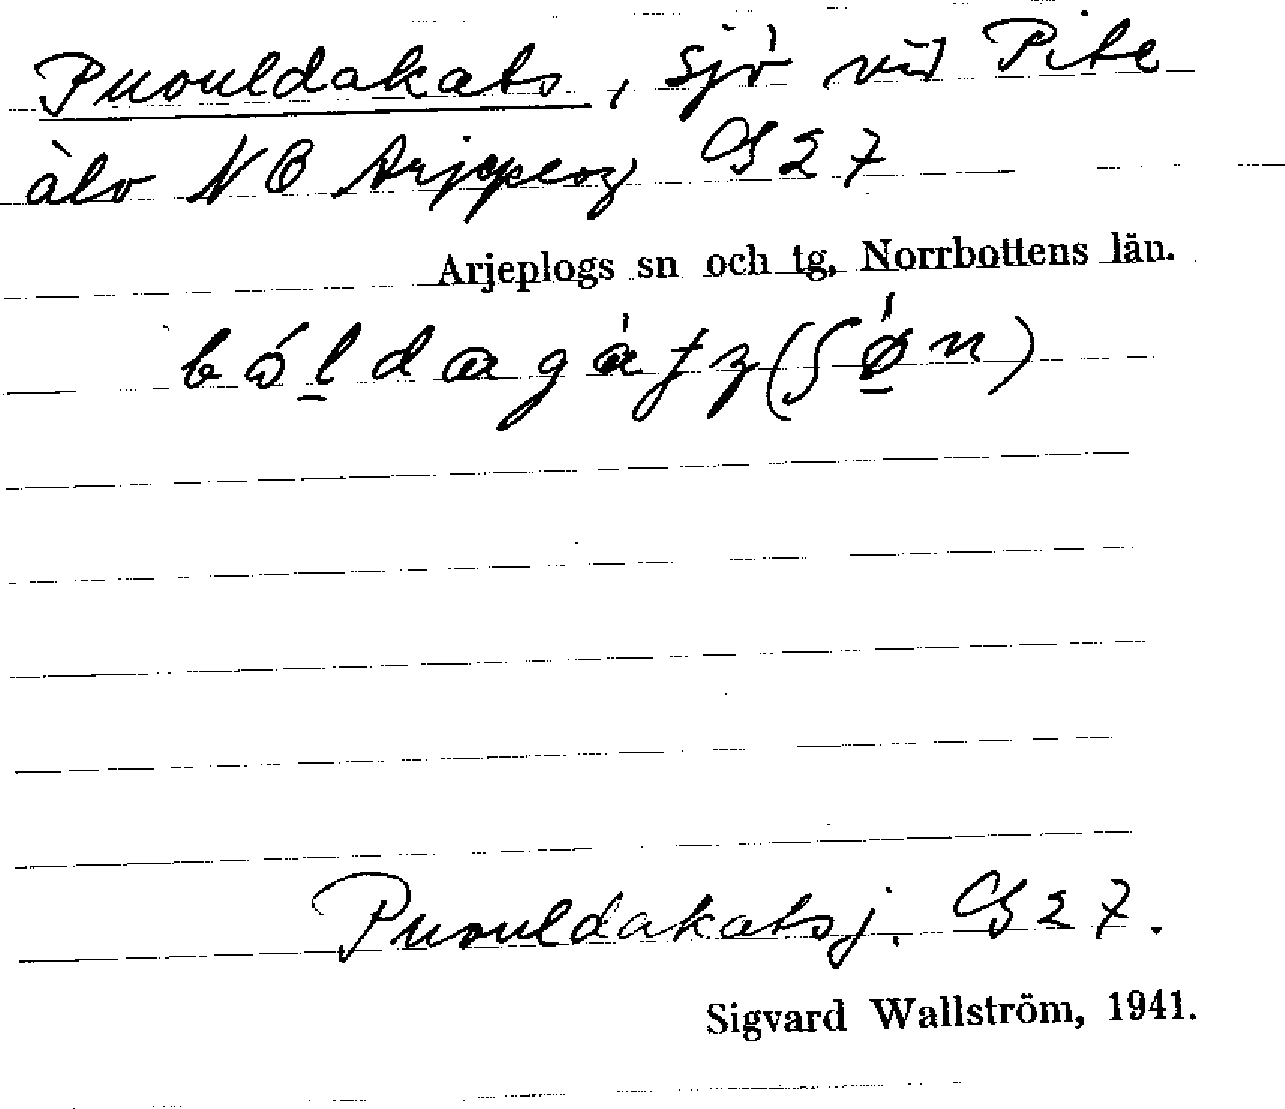 Puouldakats, sjö vid Pite
älv NO Arjeplog G27
Arjeplogs sn och tg, Norrbottens län.
Puouldakatsj. G27.
Sigvard Wallström, 1941.